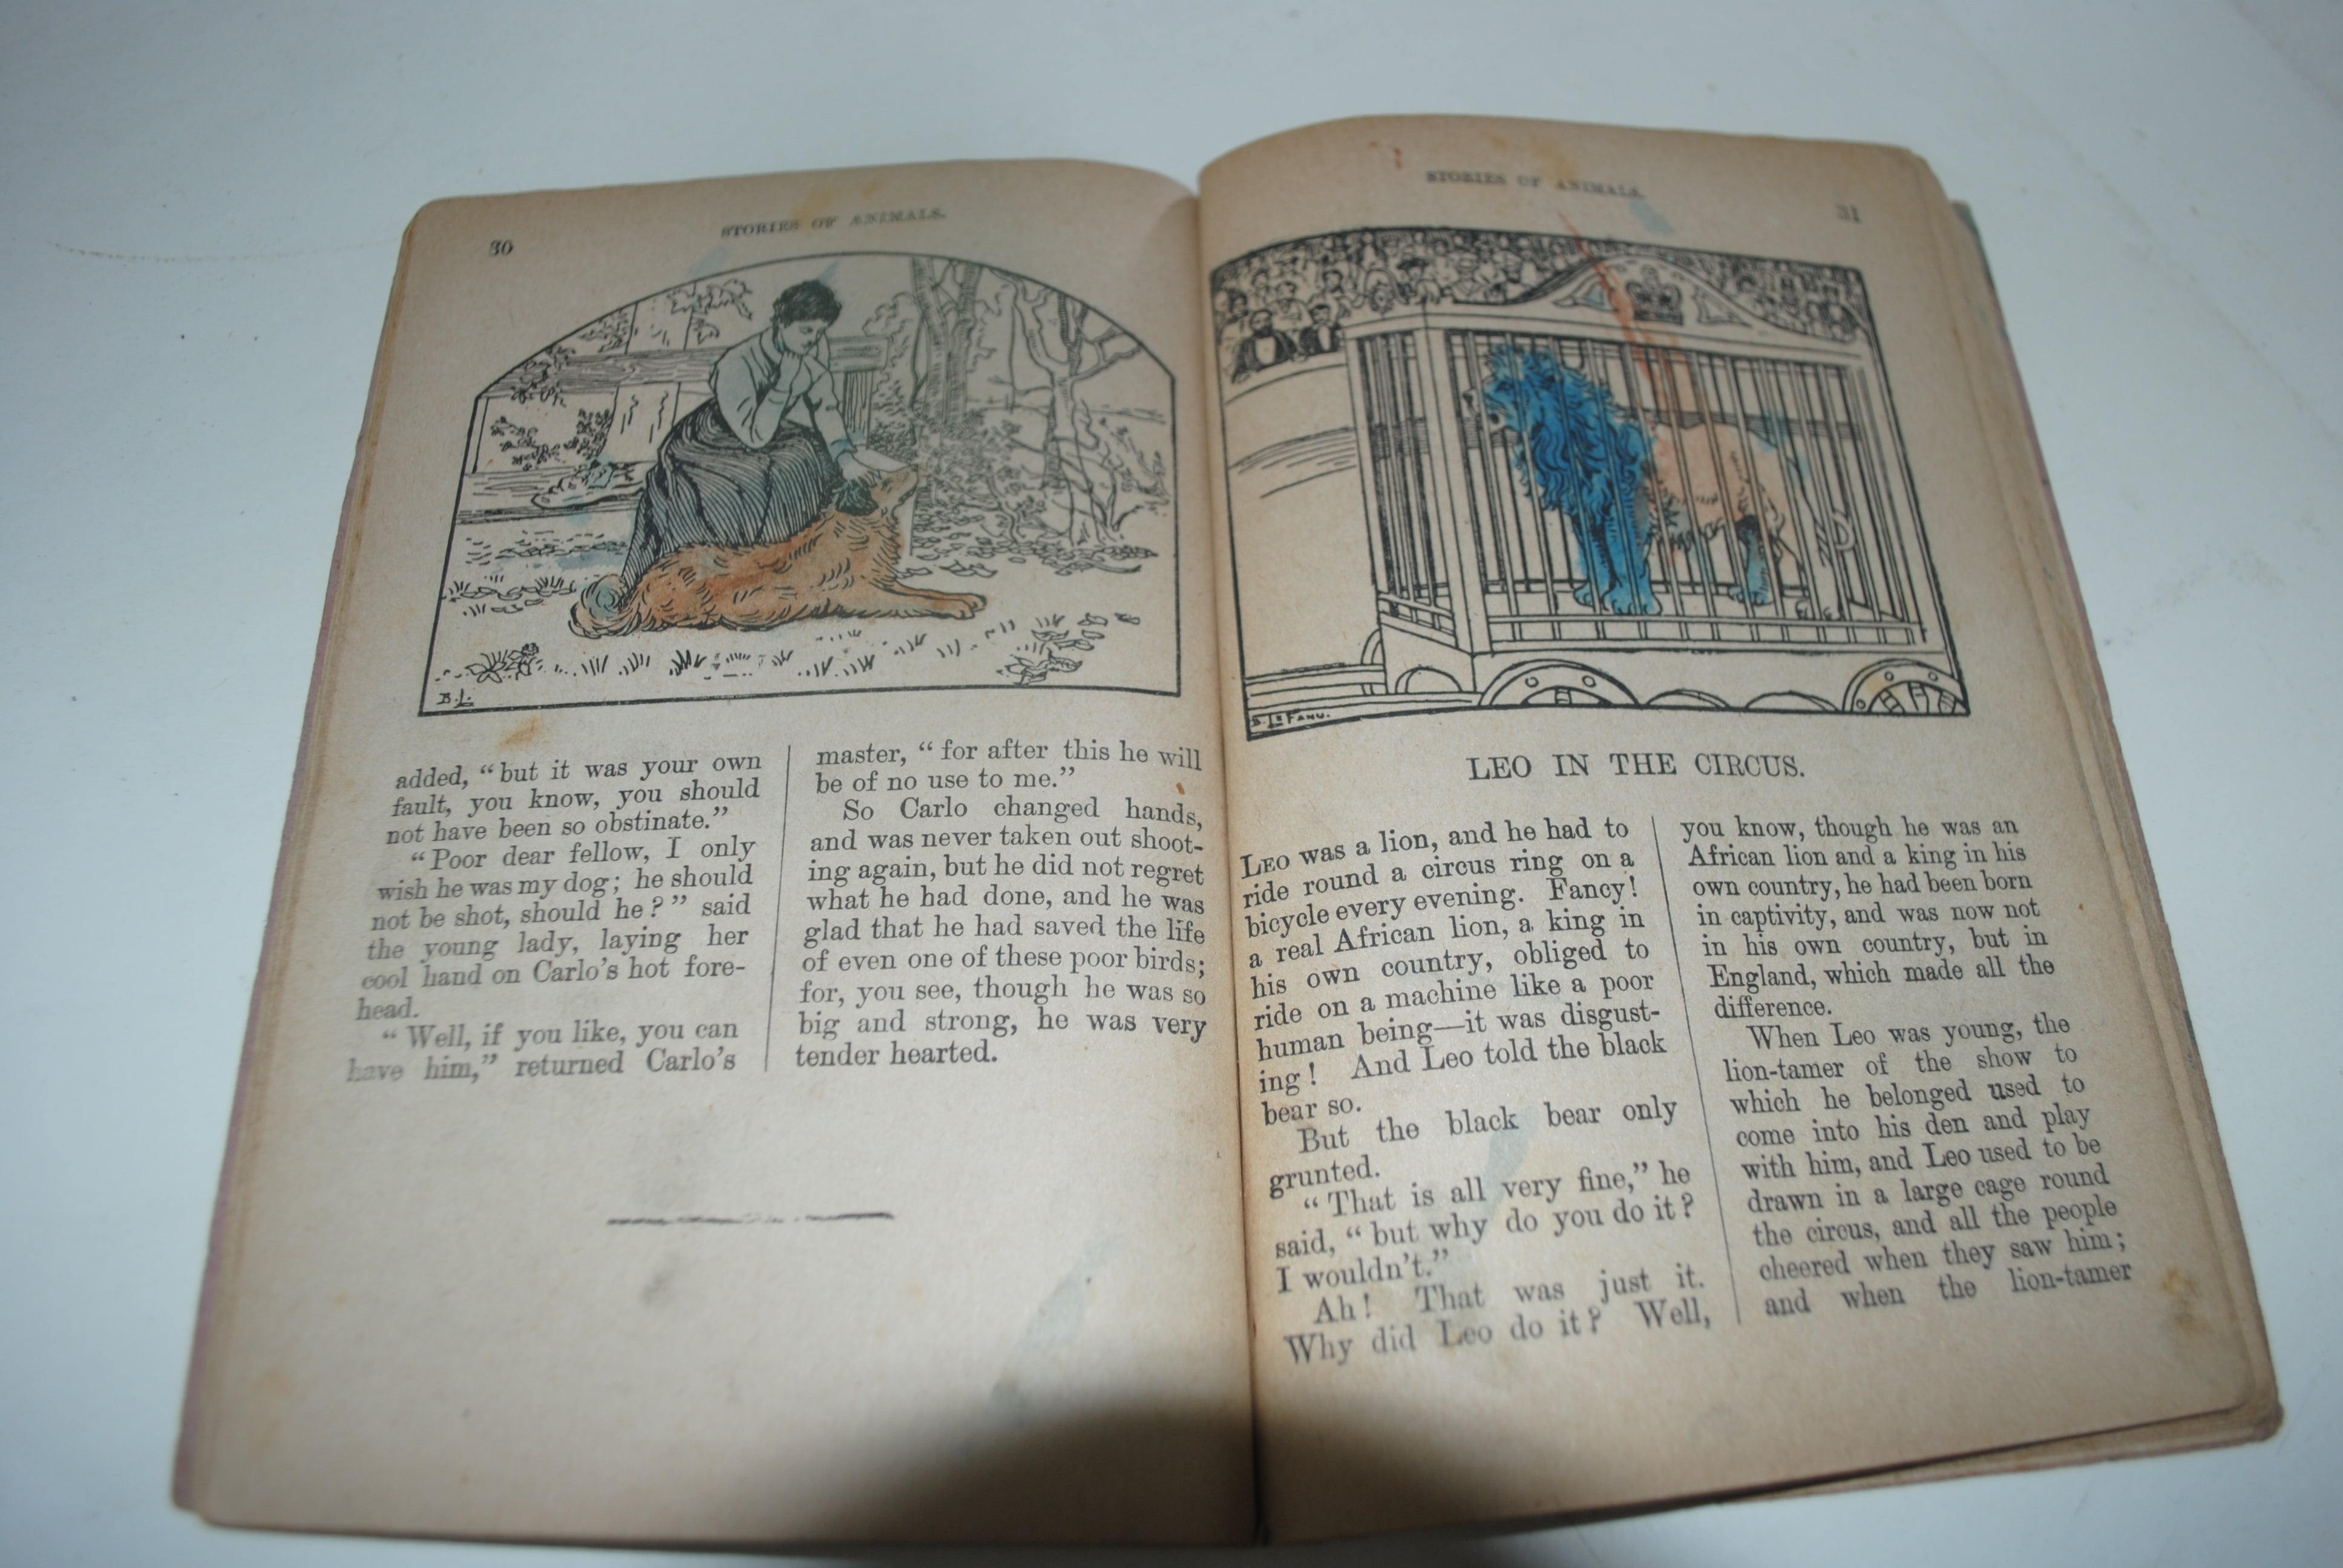 30
STORIES OF ANIMALS.
B.L.
added, “but it was your own
fault, you know, you should
not have been so obstinate.”
“Poor dear fellow, I only
wish he was my dog; he should
not be shot, should he?” said
the young lady, laying her
cool hand on Carlo's hot fore-
head.
“Well, if you like, you can
have him,” returned Carlo's
master, “for after this he will
be of no use to me.”
So Carlo changed hands,
and was never taken out shoot-
ing again, but he did not regret
what he had done, and he was
glad that he had saved the life
of even one of these poor birds;
for, you see, though he was so
big and strong, he was very
tender hearted.
STORIES OF ANIMALS.
31
B. Le Fanu.
LEO IN THE CIRCUS.
LEO was a lion, and he had to
ride round a circus ring on a
bicycle every evening. Fancy!
a real African lion, a king in
his own country, obliged to
ride on a machine like a poor
human being—it was disgust-
ing! And Leo told the black
bear so.
But the black bear only
grunted.
“That is all very fine,” he
said, “but why do you do it?
I wouldn't.”
Ah! That was just it.
Why did Leo do it? Well,
you know, though he was an
African lion and a king in his
own country, he had been born
in captivity, and was now not
in his own country, but in
England, which made all the
difference.
When Leo was young, the
lion-tamer of the show to
which he belonged used to
come into his den and play
with him, and Leo used to be
drawn in a large cage round
the circus, and all the people
cheered when they saw him;
and when the lion-tamer